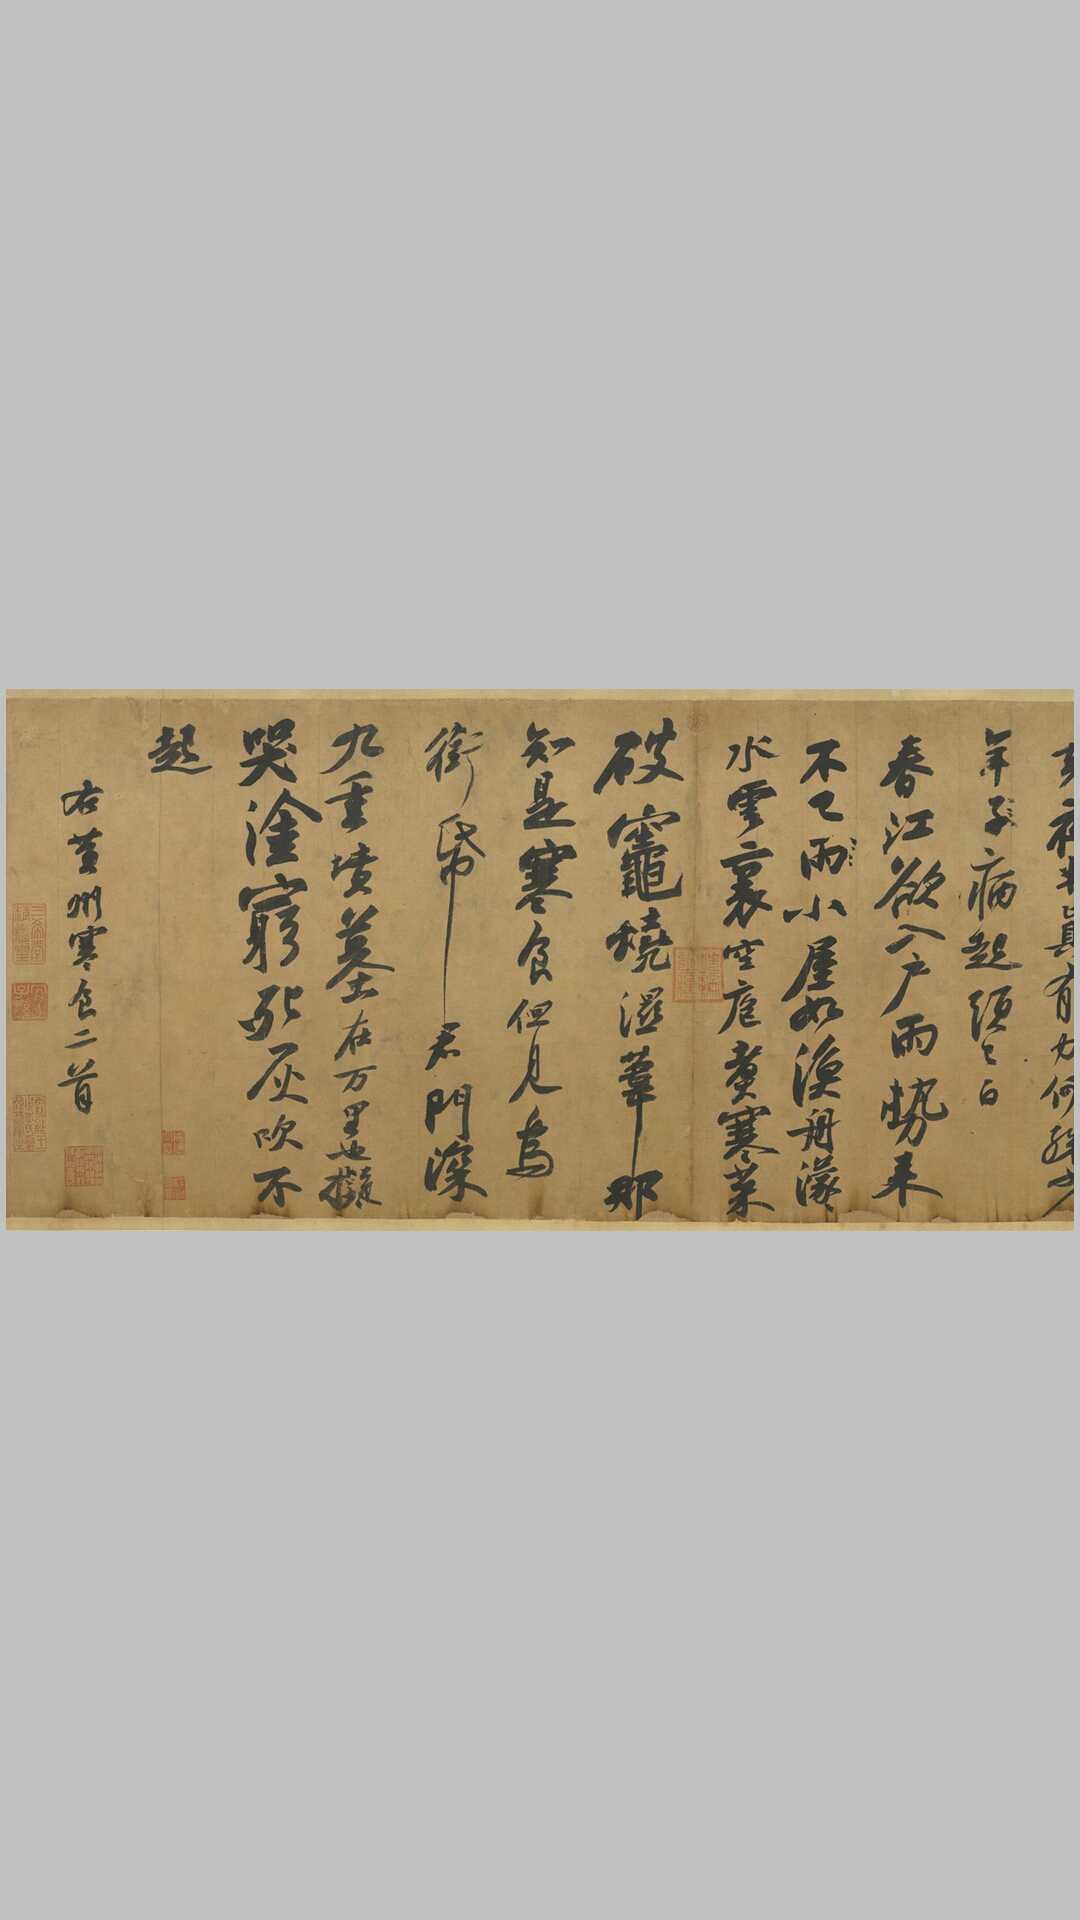 真有力何
年子病起頭已白
春江欲入户雨勢来
不已雨小屋如漁舟濛〻
水雲裏空庖煑寒菜
破竈燒濕葦那
知是寒食但見烏
銜帋君門深
九重墳墓在万里也擬
哭塗窮死灰吹不
起
右黄州寒食二首